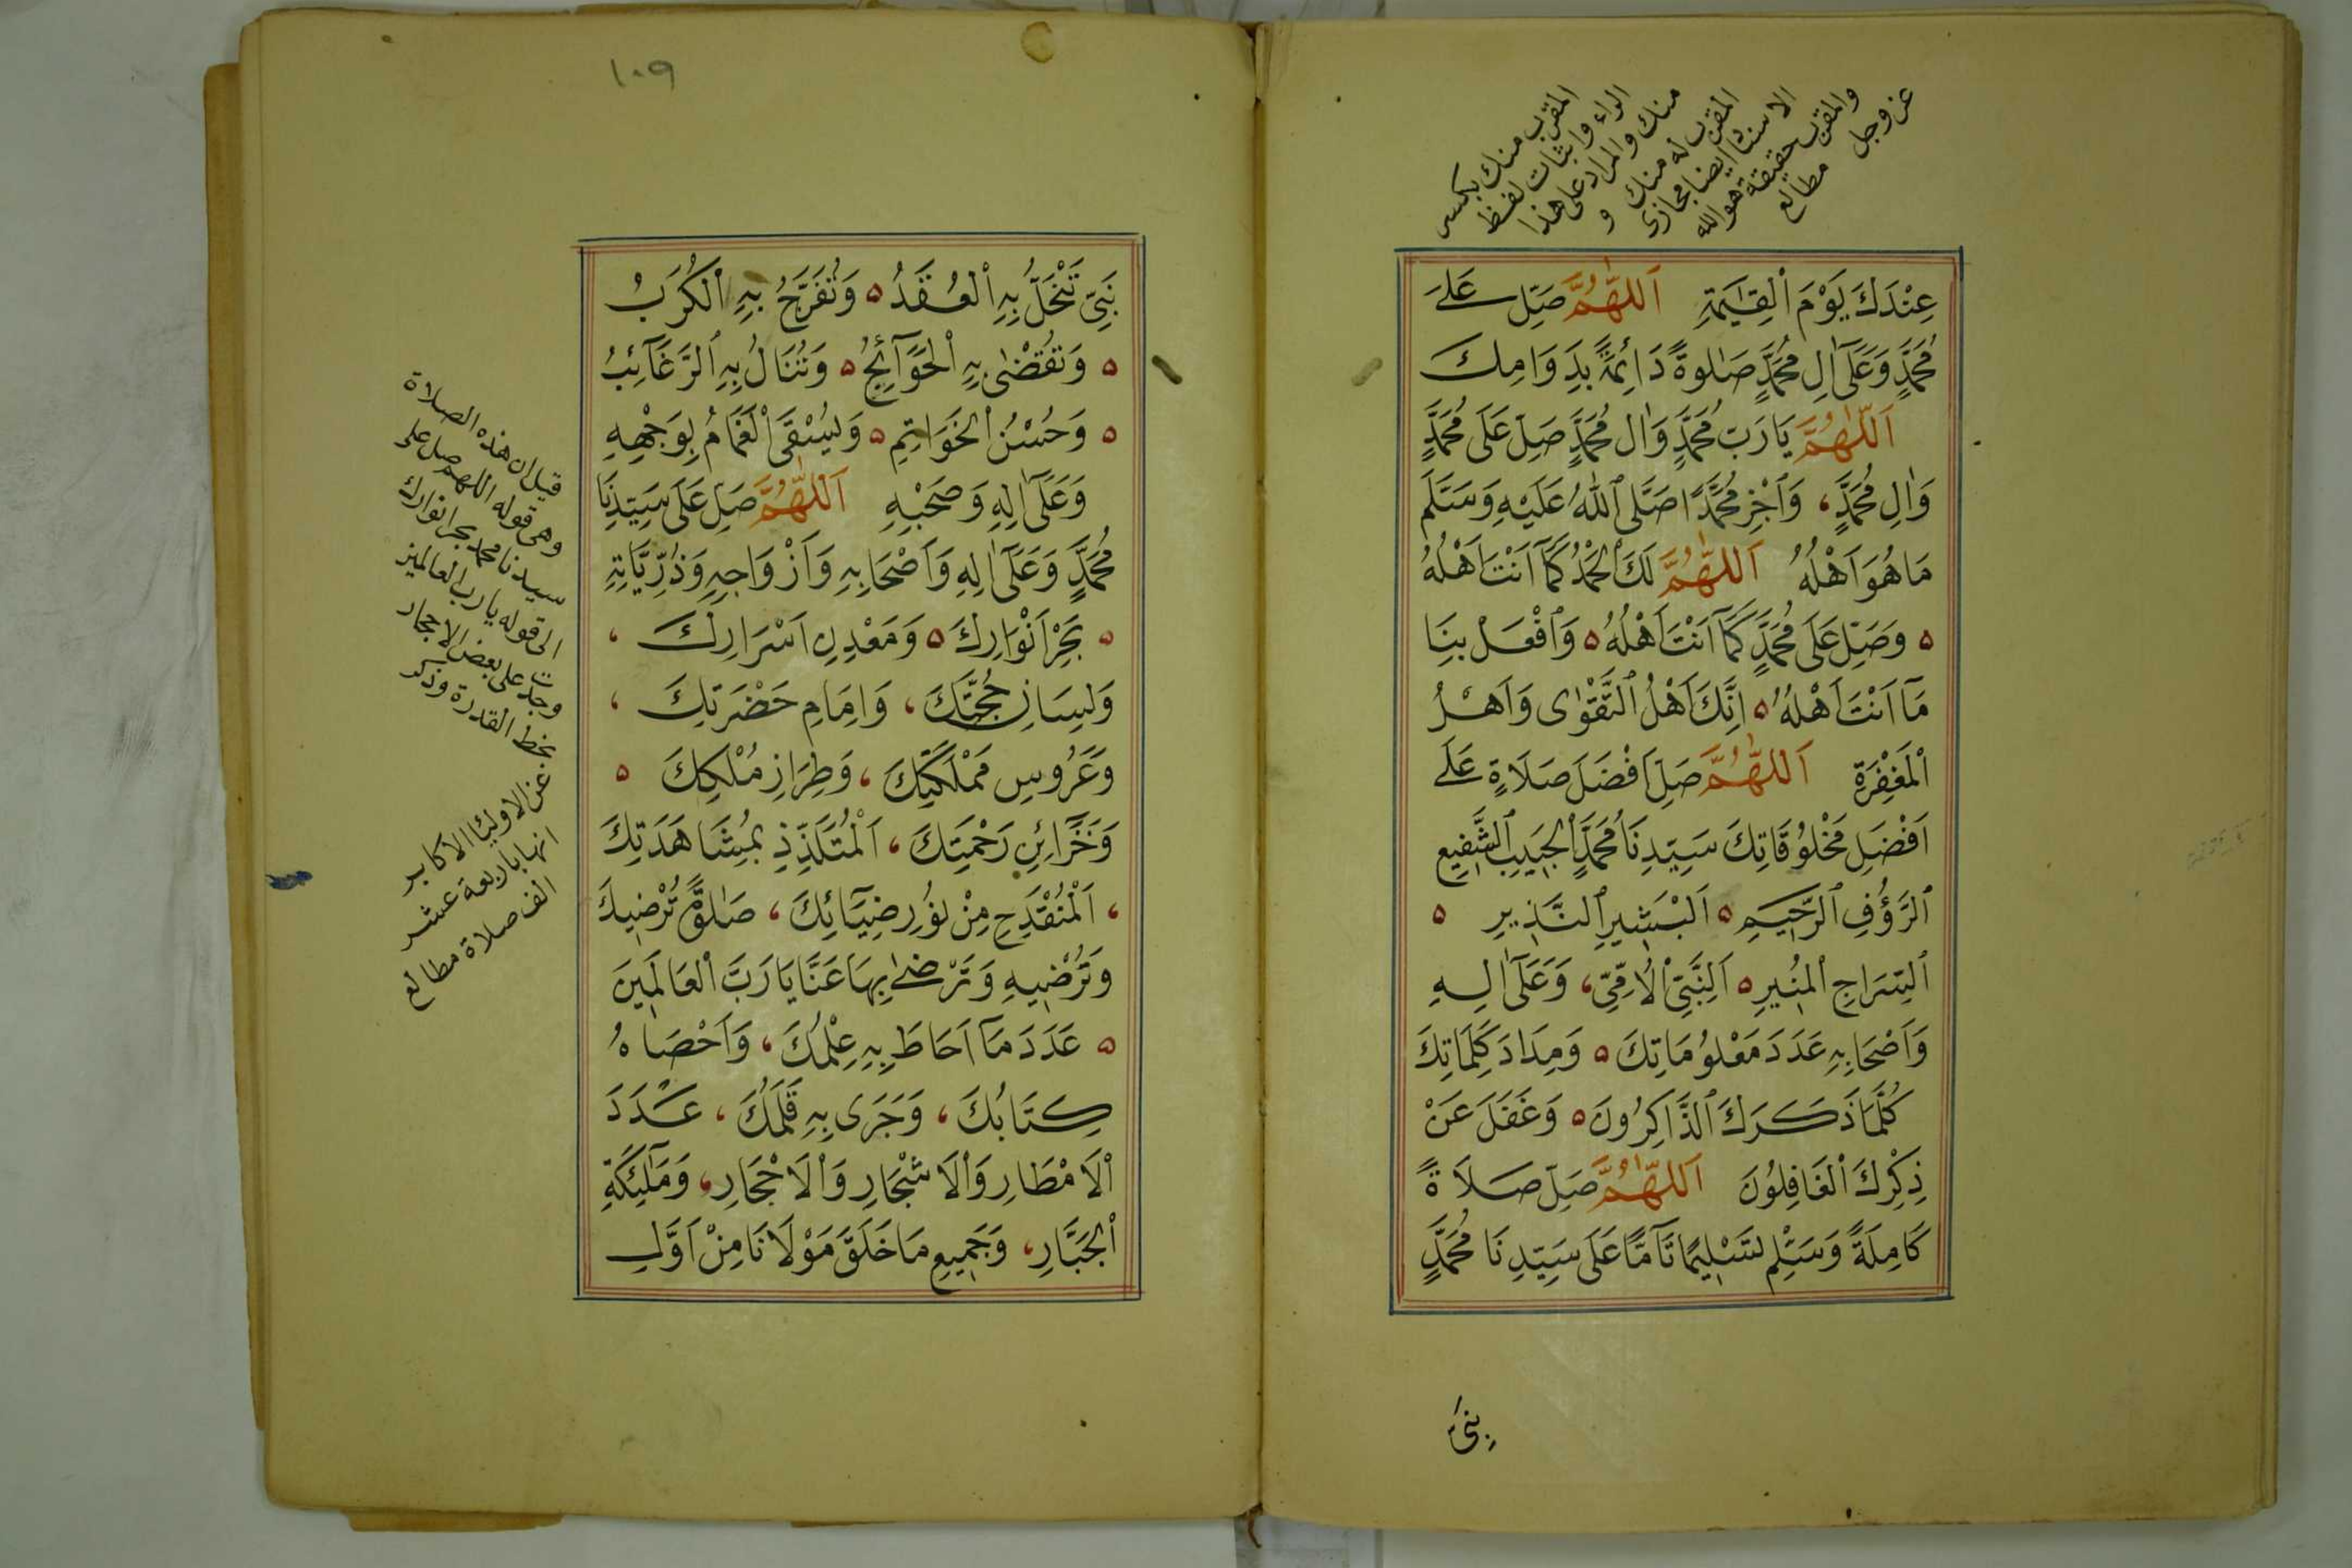 المقرب منك بكسر
الراء واثبات لفظ
منك والمراد على هذا
المقرب له منك و
الاسناد ايضا مجازى
والمقرب حقيقة هو الله
عز وجل مطالع
عِنْدَكَ يَوْمَ الْقِيٰمَةِ اَللّٰهُمَّ صَلِّ عَلٰى
مُحَمَّدٍ وَعَلٰٓى اٰلِ مُحَمَّدٍ صَلٰوةً دَائِمَةً بِدَوَامِكَ
اَللّٰهُمَّ يَا رَبَّ مُحَمَّدٍ وَاٰلِ مُحَمَّدٍ صَلِّ عَلٰى مُحَمَّدٍ
وَاٰلِ مُحَمَّدٍ، وَاَجْزِ مُحَمَّدًا صَلَّى اللّٰهُ عَلَيْهِ وَسَلَّمَ
مَا هُوَ اَهْلُهُ اَللّٰهُمَّ لَكَ الْحَمْدُ كَمَآ اَنْتَ اَهْلُهُ
٥ وَصَلِّ عَلٰى مُحَمَّدٍ كَمَآ اَنْتَ اَهْلُهُ ٥ وَافْعَلْ بِنَا
مَآ اَنْتَ اَهْلُهُ ٥ اِنَّكَ اَهْلُ التَّقْوٰى وَاَهْلُ
الْمَغْفِرَةِ اَللّٰهُمَّ صَلِّ اَفْضَلَ صَلَاةٍ عَلٰى
اَفْضَلِ مَخْلُوقَاتِكَ سَيِّدِنَا مُحَمَّدٍ الْحَبِيبِ الشَّفِيعِ
الرَّؤُفِ الرَّحِيمِ ٥ اَلْبَشِيرِ النَّذِيرِ ٥
السِّرَاجِ الْمُنِيرِ ٥ اَلنَّبِيِّ الْاُمِّيِّ، وَعَلٰٓى اٰلِهِ
وَاَصْحَابِهِ عَدَدَ مَعْلُومَاتِكَ ٥ وَمِدَادَ كَلِمَاتِكَ
كُلَّمَا ذَكَرَكَ الذَّاكِرُونَ ٥ وَغَفَلَ عَنْ
ذِكْرِكَ الْغَافِلُونَ اَللّٰهُمَّ صَلِّ صَلَاةً
كَامِلَةً وَسَلِّمْ تَسْلِيمًا تَآمًّا عَلٰى سَيِّدِنَا مُحَمَّدٍ
نَبِيٍّ
١٠٩
نَبِيٍّ تَنْحَلُّ بِهِ الْعُقَدُ ٥ وَتُفَرَّجُ بِهِ الْكُرَبُ
٥ وَتُقْضٰى بِهِ الْحَوَآئِجُ ٥ وَتُنَالُ بِهِ الرَّغَآئِبُ
٥ وَحُسْنُ الْخَوَاتِمِ ٥ وَيُسْقَى الْغَمَامُ بِوَجْهِهِ
وَعَلٰٓى اٰلِهِ وَصَحْبِهِ اَللّٰهُمَّ صَلِّ عَلٰى سَيِّدِنَا
مُحَمَّدٍ وَعَلٰٓى اٰلِهِ وَاَصْحَابِهِ وَاَزْوَاجِهِ وَذُرِّيَّاتِهِ
٥ بَحْرِ اَنْوَارِكَ ٥ وَمَعْدِنِ اَسْرَارِكَ ،
وَلِسَانِ حُجَّتِكَ، وَاِمَامِ حَضْرَتِكَ ،
وَعَرُوسِ مَمْلَكَتِكَ، وَطِرَازِ مُلْكِكَ ٥
وَخَزَائِنِ رَحْمَتِكَ، اَلْمُتَلَذِّذِ بِمُشَاهَدَتِكَ
، اَلْمُنْقَدِحِ مِنْ نُورِ ضِيَآئِكَ، صَلٰوةً تُرْضِيكَ
وَتُرْضِيهِ وَتَرْضٰى بِهَا عَنَّا يَا رَبَّ الْعَالَمِينَ
٥ عَدَدَ مَآ اَحَاطَ بِهِ عِلْمُكَ، وَاَحْصَاهُ
كِتَابُكَ، وَجَرٰى بِهِ قَلَمُكَ، عَدَدَ
الْاَمْطَارِ وَالْاَشْجَارِ وَالْاَحْجَارِ، وَمَلٰٓئِكَةِ
الْجَبَّارِ، وَجَمِيعِ مَا خَلَقَ مَوْلَانَا مِنْ اَوَّلِ
قيل ان هذه الصلاة
وهى قوله اللهم صل على
سيدنا محمد بحر انوارك
الى قوله يا رب العالمين
وجدت على بعض الاحجار
بخط القدرة وذكر
عن الاوليا الاكابر
انها باربعة عشر
الف صلاة مطالع